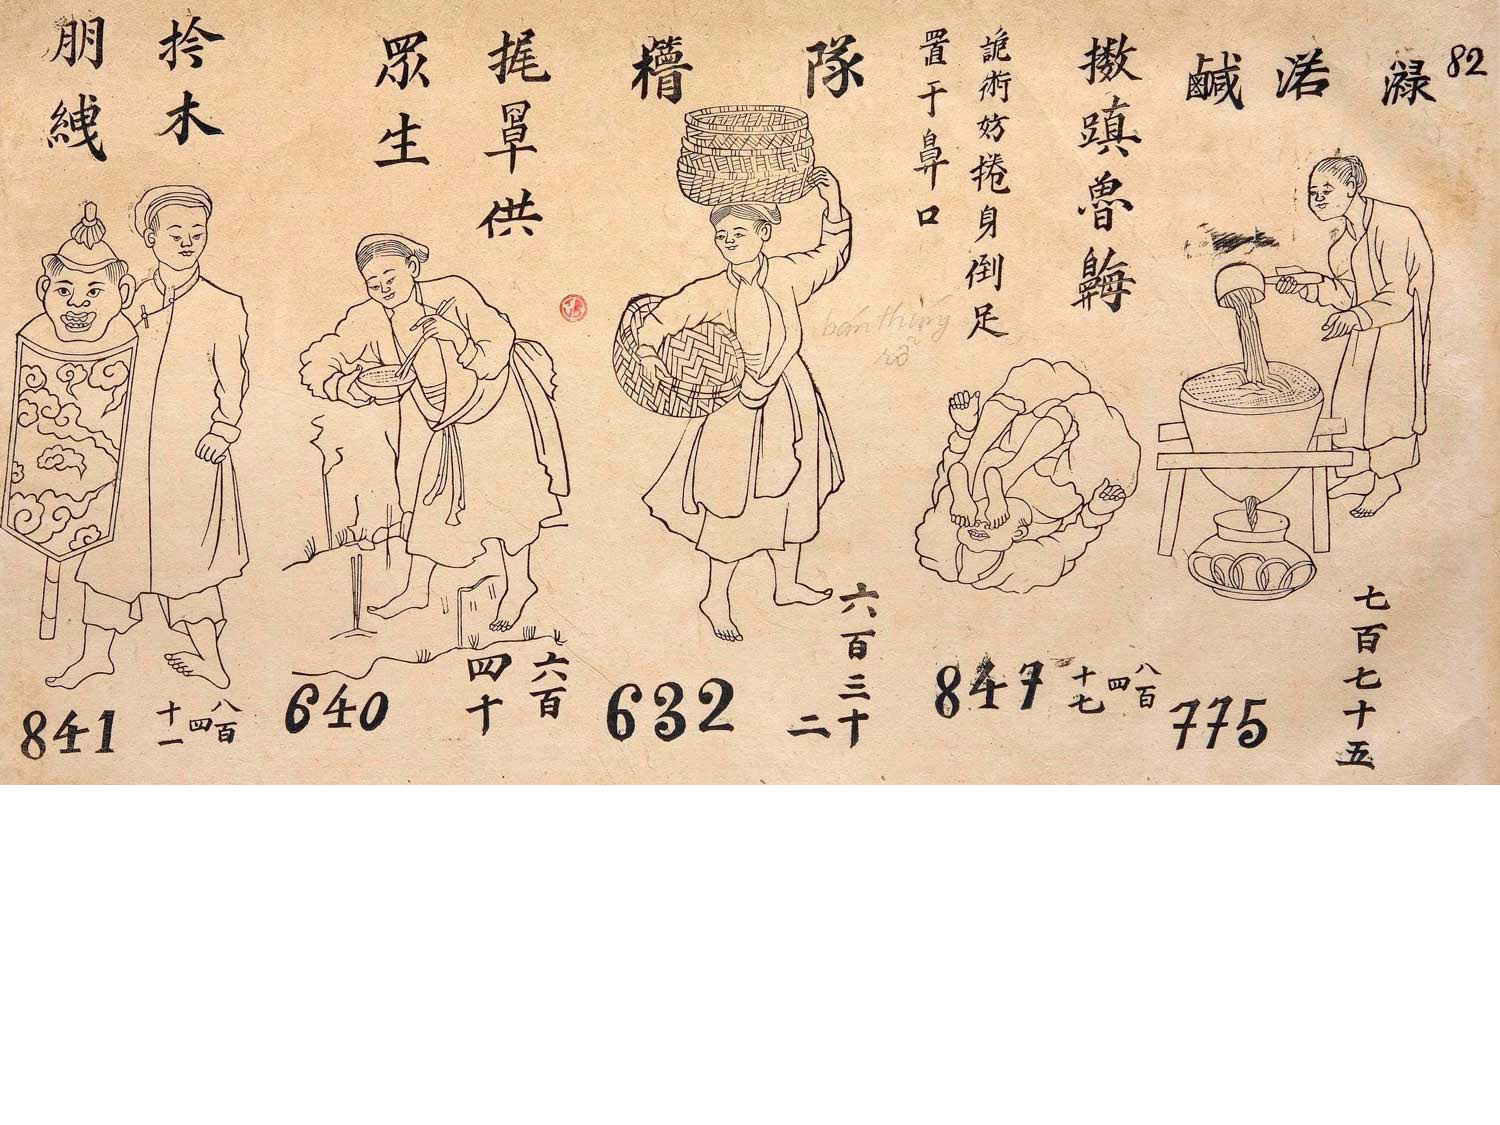 82
淥
渃
鹹
775
七百七十五
擞蹎魯𪖫
詭術妨捲身倒足
置于鼻口
847
八百
四
十七
隊
bán thúng
rổ
632
六百三十
二
捤𥱬供
眾生
640
六百
四十
拎木
朋絏
841
八百
四
十一